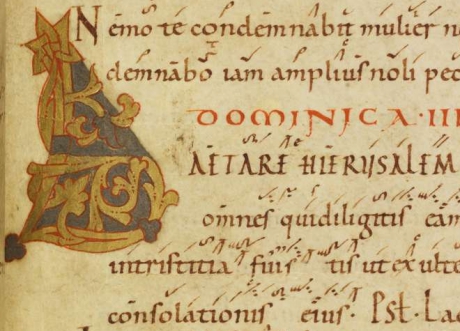 Nemo te condemnabit mulier
demnabo iam amplius noli pec
DOMINICA · III
LAETARE HIERUSALEM
omnes qui diligitis eam
in tristitia fuis tis ut exulte
consolationis eius · Pst. Lae